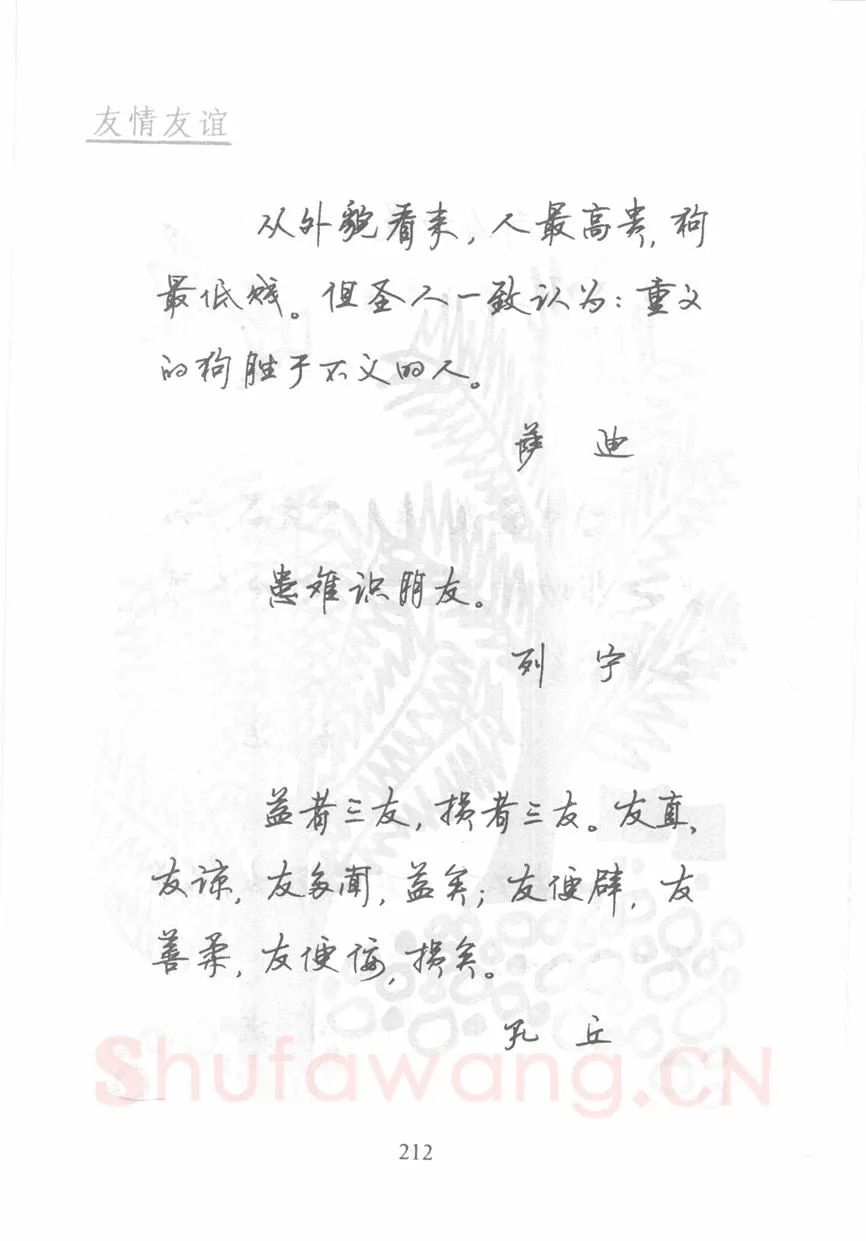 友情友谊
从外貌看来，人最高贵，狗
最低贱。但圣人一致认为：重义
的狗胜于不义的人。
萨 迪
患难识朋友。
列 宁
益者三友，损者三友。友直，
友谅，友多闻，益矣；友便辟，友
善柔，友便佞，损矣。
孔 丘
Shufawang.CN
212